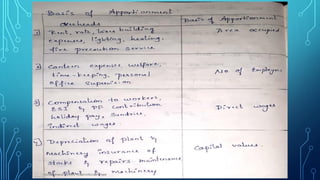 Basis of Apportionment
overheads
Basis of Apportionment
1) Rent, rate, building
expenses, lighting, heating,
fire precaution service
Area occupied
2) Canteen expenses welfare,
time-keeping, personal
office supervision
No of Employee
3) Compensation to workers,
ESI & PF Contribution
holiday pay,
indirect wages.
Direct wages
4) Depreciation of plant &
Machinery insurance of
stocks & repairs maintenance
of plant & machinery
Capital values.